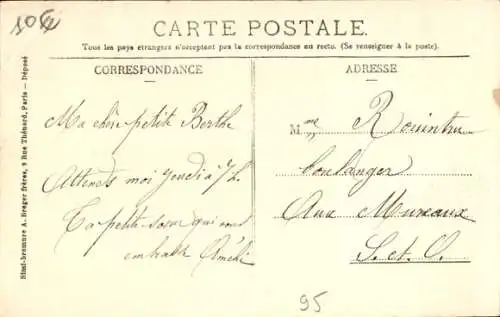 10€
CARTE POSTALE.
Tous les pays étrangers n'acceptent pas la correspondance au recto. (Se renseigner à la poste).
CORRESPONDANCE
ADRESSE
Ma chère petite Berthe
Attends moi jeudi à 7h.
Ta petite sœur qui
embrasse Amélie
Mme
boulanger
Aux Mureaux
S. et O.
95
Simi-bromure A. Breger frères, 9 Rue Thénard, Paris — Déposé